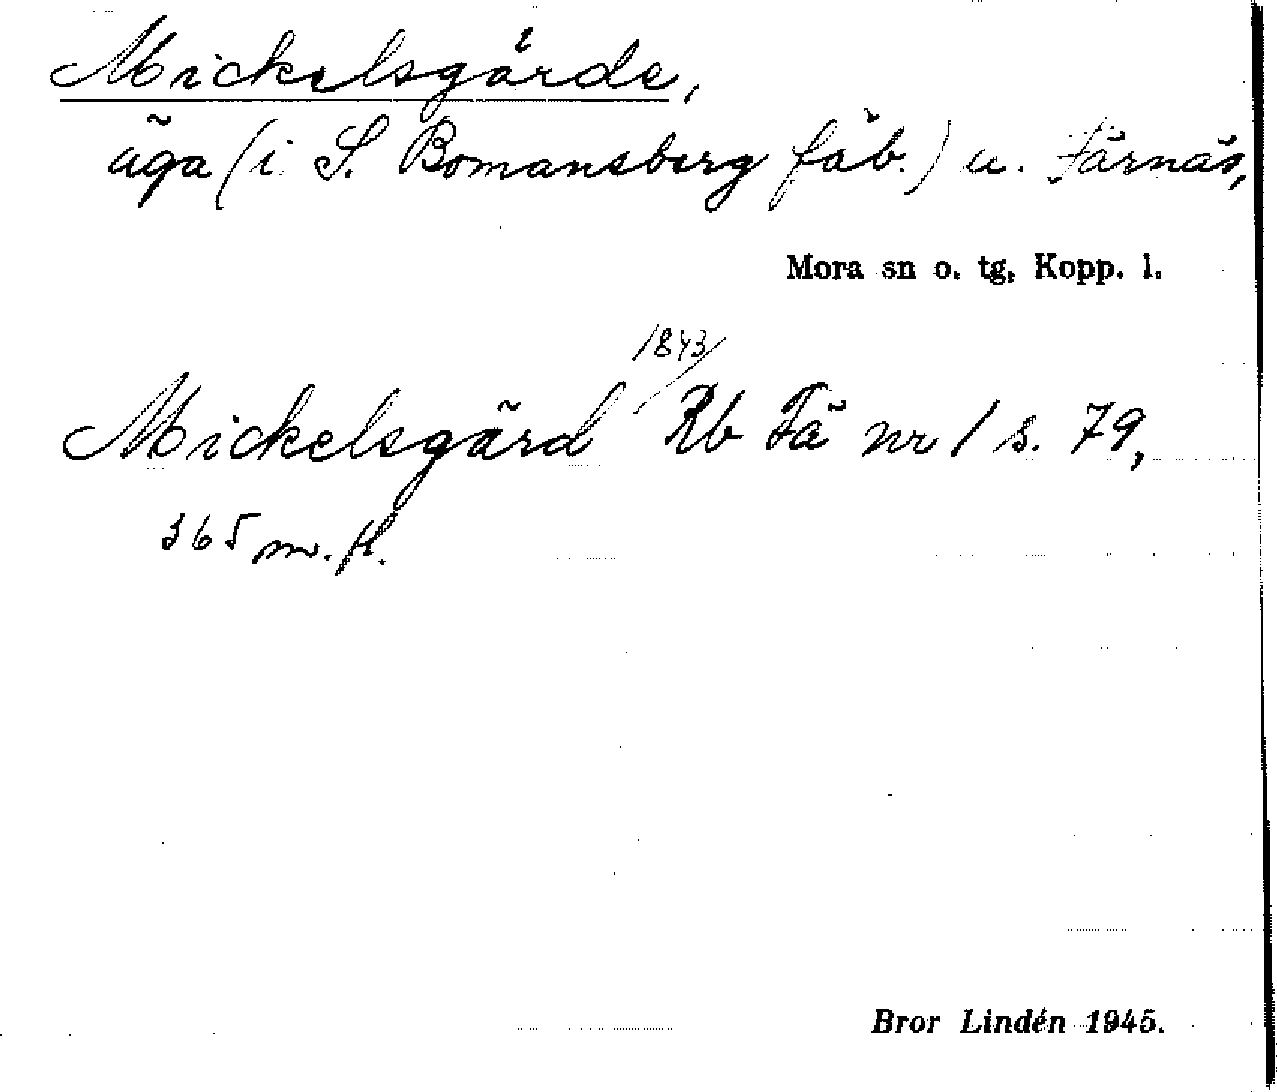 Mickelsgärde,
äga (i S. Bomansberg fäb.) u. Färnäs,
Mora sn o. tg, Kopp. l.
1843/
Mickelsgärd Rb Fä nr 1 s. 79,
365 m. fl.
Bror Lindén 1945.